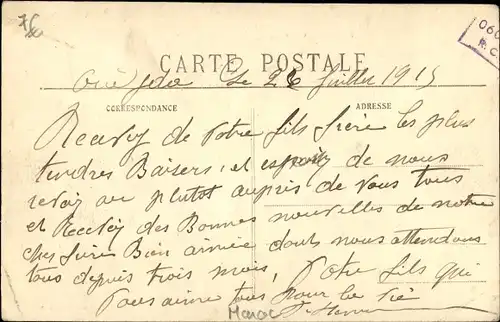 76
060
R.C.
CARTE POSTALE
Oudjda Le 26 Juillet 1915
CORRESPONDANCE
ADRESSE
Recevez de Votre fils frère les plus
tendres Baisers, et espoir de nous
revoir au plutot auprès de Vous tous
et Recevez des Bonnes nouvelles de notre
cher frère Bien aimée dont nous attendons
tous depuis trois mois, Votre fils qui
Vous aime tous pour la vie
Maroc